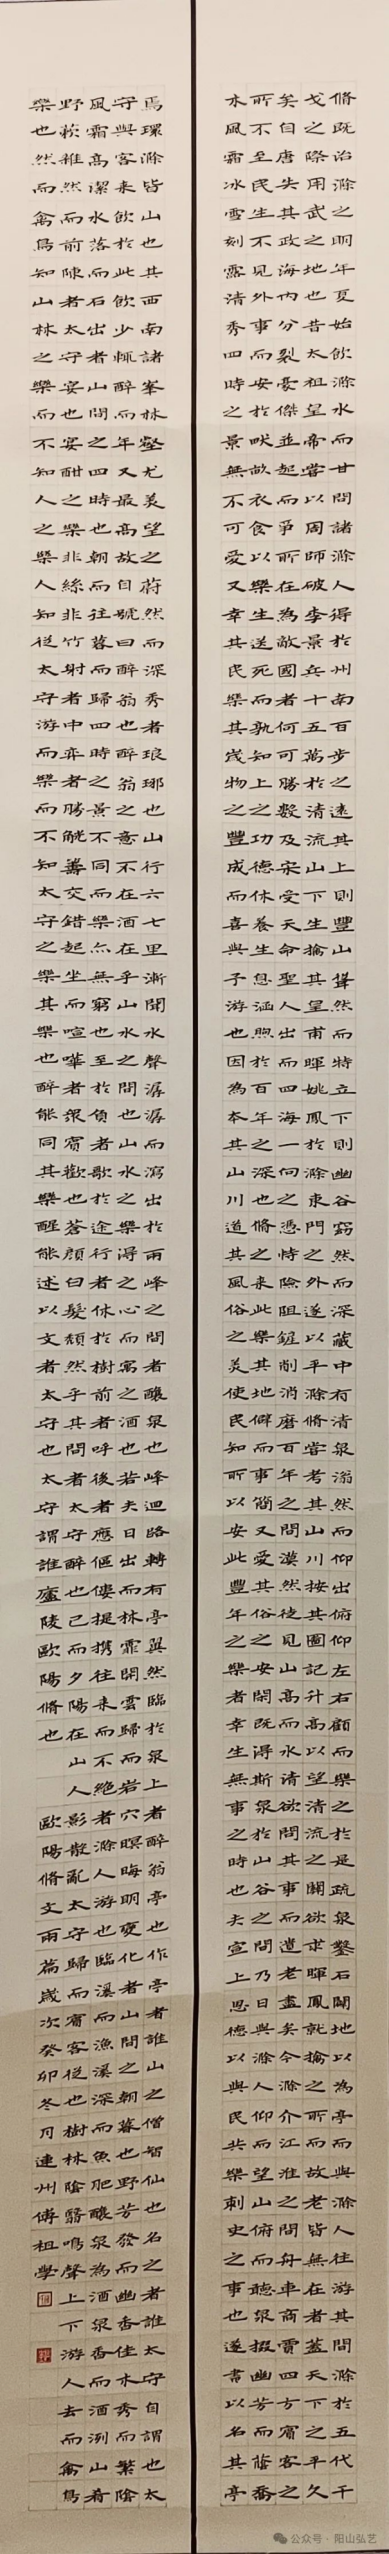 脩既治滁之明年夏始飲滁水而甘問諸滁人得於州南百步之遠其上則豐山聳然而特立下則幽谷窈然而深藏中有清泉滃然而仰出俯仰左右顧而樂之於是疏泉鑿石闢地以為亭而與滁人往游其間滁於五代干
戈之際用武之地也昔太祖皇帝嘗以周師破李景兵十五萬於清流山下生擒其皇甫暉姚鳳於滁東門之外遂以平滁脩嘗考其山川按其圖記升高以望清流之關欲求暉鳳就擒之所而故老皆無在者蓋天下之平久
矣自唐失其政海內分裂豪傑並起而爭所在為敵國者何可勝數及宋受天命聖人出而四海一向之憑恃險阻鏟削消磨百年之間漠然徒見山高而水清欲問其事而遺老盡矣今滁介江淮之間舟車商賈四方賓客之
所不至民生不見外事而安於畎畝衣食以樂生送死而孰知上之功德休養生息涵煦於百年之深也脩之來此樂其地僻而事簡又愛其俗之安閑既得斯泉於山谷之間乃日與滁人仰而望山俯而聽泉掇幽芳而蔭喬
木風霜冰雪刻露清秀四時之景無不可愛又幸其民樂其歲物之豐成而喜與予游也因為本其山川道其風俗之美使民知所以安此豐年之樂者幸生無事之時也夫宣上恩德以與民共樂刺史之事也遂書以名其亭
焉環滁皆山也其西南諸峯林壑尤美望之蔚然而深秀者琅琊也山行六七里漸聞水聲潺潺而瀉出於兩峰之間者釀泉也峰迴路轉有亭翼然臨於泉上者醉翁亭也作亭者誰山之僧智仙也名之者誰太守自謂也太
守與客來飲於此飲少輒醉而年又最高故自號曰醉翁也醉翁之意不在酒在乎山水之間也山水之樂得之心而寓之酒也若夫日出而林霏開雲歸而岩穴暝晦明變化者山間之朝暮也野芳發而幽香佳木秀而繁陰
風霜高潔水落而石出者山間之四時也朝而往暮而歸四時之景不同而樂亦無窮也至於負者歌於途行者休於樹前者呼後者應傴僂提攜往來而不絕者滁人游也臨溪而漁溪深而魚肥釀泉為酒泉香而酒洌山肴
野蔌雜然而前陳者太守宴也宴酣之樂非絲非竹射者中弈者勝觥籌交錯起坐而喧嘩者眾賓歡也蒼顏白髮頹然乎其間者太守醉也已而夕陽在山人影散亂太守歸而賓客從也樹林陰翳鳴聲上下游人去而禽鳥
樂也然而禽鳥知山林之樂而不知人之樂人知從太守游而樂而不知太守之樂其樂也醉能同其樂醒能述以文者太守也太守謂誰廬陵歐陽脩也 歐陽脩文兩篇歲次癸卯冬月連州傅祖學
公众号·阳山弘艺